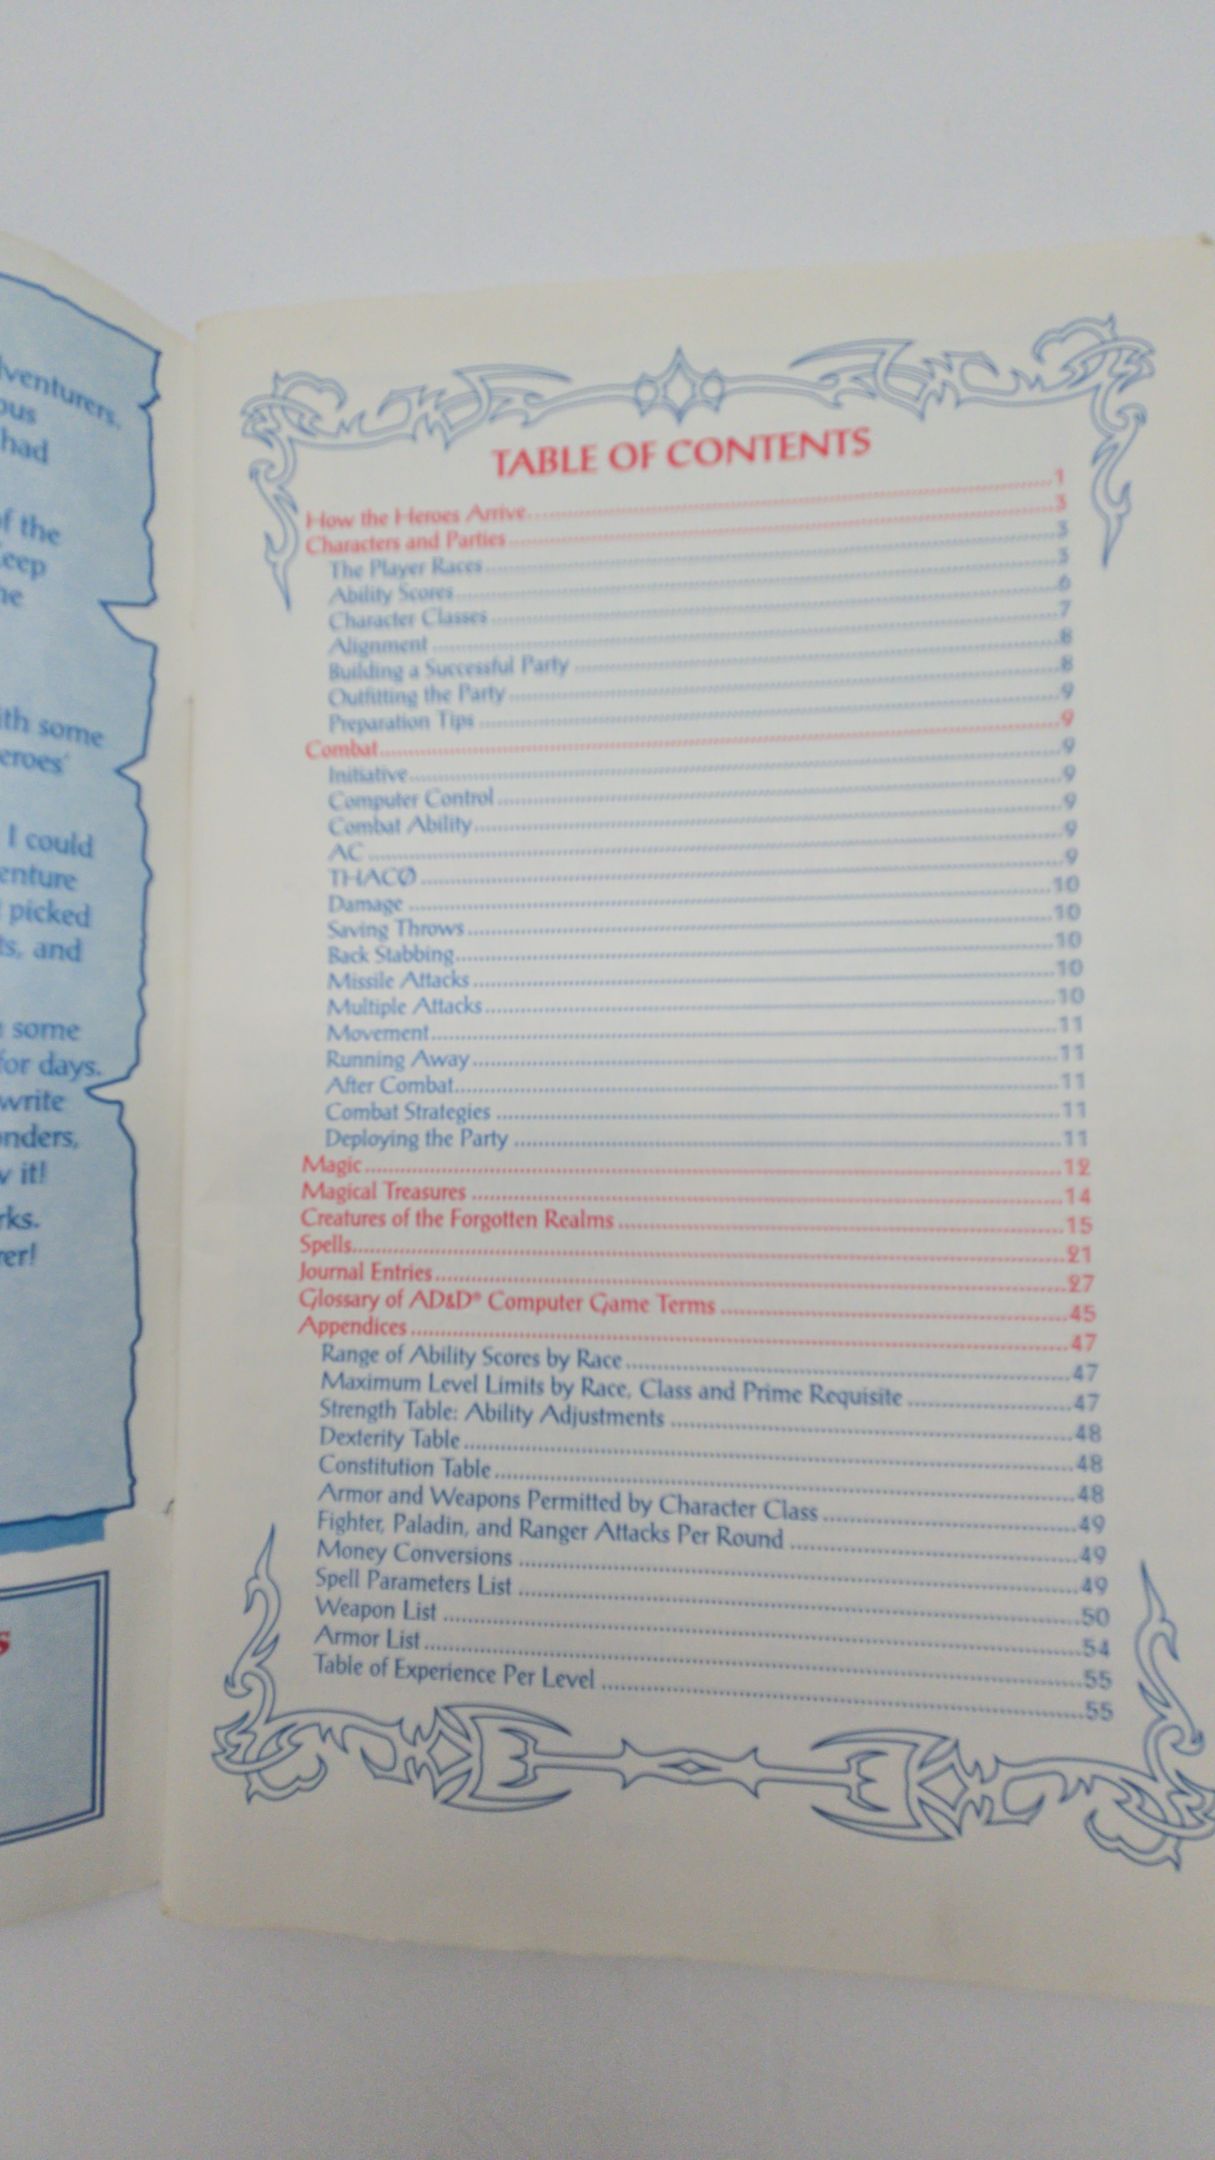 dventurers,
ous
had
of the
eep
he
ith some
eroes'
I could
enture
picked
ts, and
some
for days.
write
onders,
w it!
rks.
rer!
s
TABLE OF CONTENTS
How the Heroes Arrive....................1
Characters and Parties....................3
The Player Races....................3
Ability Scores....................3
Character Classes....................6
Alignment....................7
Building a Successful Party....................8
Outfitting the Party....................8
Preparation Tips....................9
Combat....................9
Initiative....................9
Computer Control....................9
Combat Ability....................9
AC....................9
THACØ....................9
Damage....................10
Saving Throws....................10
Back Stabbing....................10
Missile Attacks....................10
Multiple Attacks....................10
Movement....................11
Running Away....................11
After Combat....................11
Combat Strategies....................11
Deploying the Party....................11
Magic....................12
Magical Treasures....................14
Creatures of the Forgotten Realms....................15
Spells....................21
Journal Entries....................27
Glossary of AD&D® Computer Game Terms....................45
Appendices....................47
Range of Ability Scores by Race....................47
Maximum Level Limits by Race, Class and Prime Requisite....................47
Strength Table: Ability Adjustments....................48
Dexterity Table....................48
Constitution Table....................48
Armor and Weapons Permitted by Character Class....................49
Fighter, Paladin, and Ranger Attacks Per Round....................49
Money Conversions....................49
Spell Parameters List....................50
Weapon List....................54
Armor List....................55
Table of Experience Per Level....................55